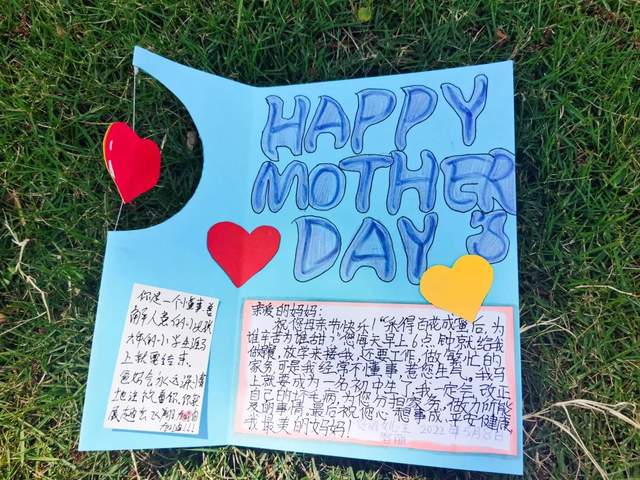 HAPPY
MOTHER'S
DAY
你是一个懂事善
解人意的小姑娘
大年的小学生活马
上就要结束
爸妈会永远深情
地注视着你,你要
展翅出
加油!!!
亲爱的妈妈:
祝您母亲节快乐!“采得百花成蜜后,为
谁辛苦为谁甜”您每天早上6点钟就给我
做饭,放学来接我,还要工作,做繁忙的
家务,可是我经常不懂事,惹您生气。我马
上就要成为一名初中生了,我一定会改正
自己的坏毛病,为您分担家务,做力所能
及的事情。最后祝您心想事成,平安健康
我最美的妈妈!
2022年5月8日